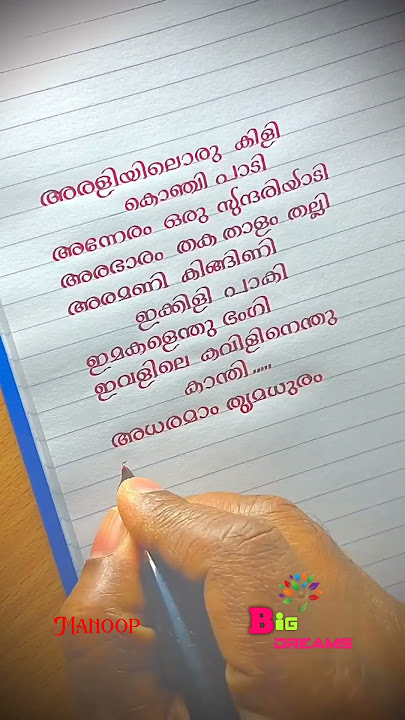 അരളിയിലൊരു കിളി
കൊഞ്ചി പാടി
അന്നേരം ഒരു സുന്ദരിയാടി
അരഭാരം തക താളം തല്ലി
അരമണി കിങ്ങിണി
ഇക്കിളി പാകി
ഇമകളെന്തു ഭംഗി
ഇവളിലെ കവിളിനെന്തു
കാന്തി.....
അധരമാം തൃമധുരം
MANOOP
BiG
DREAMS